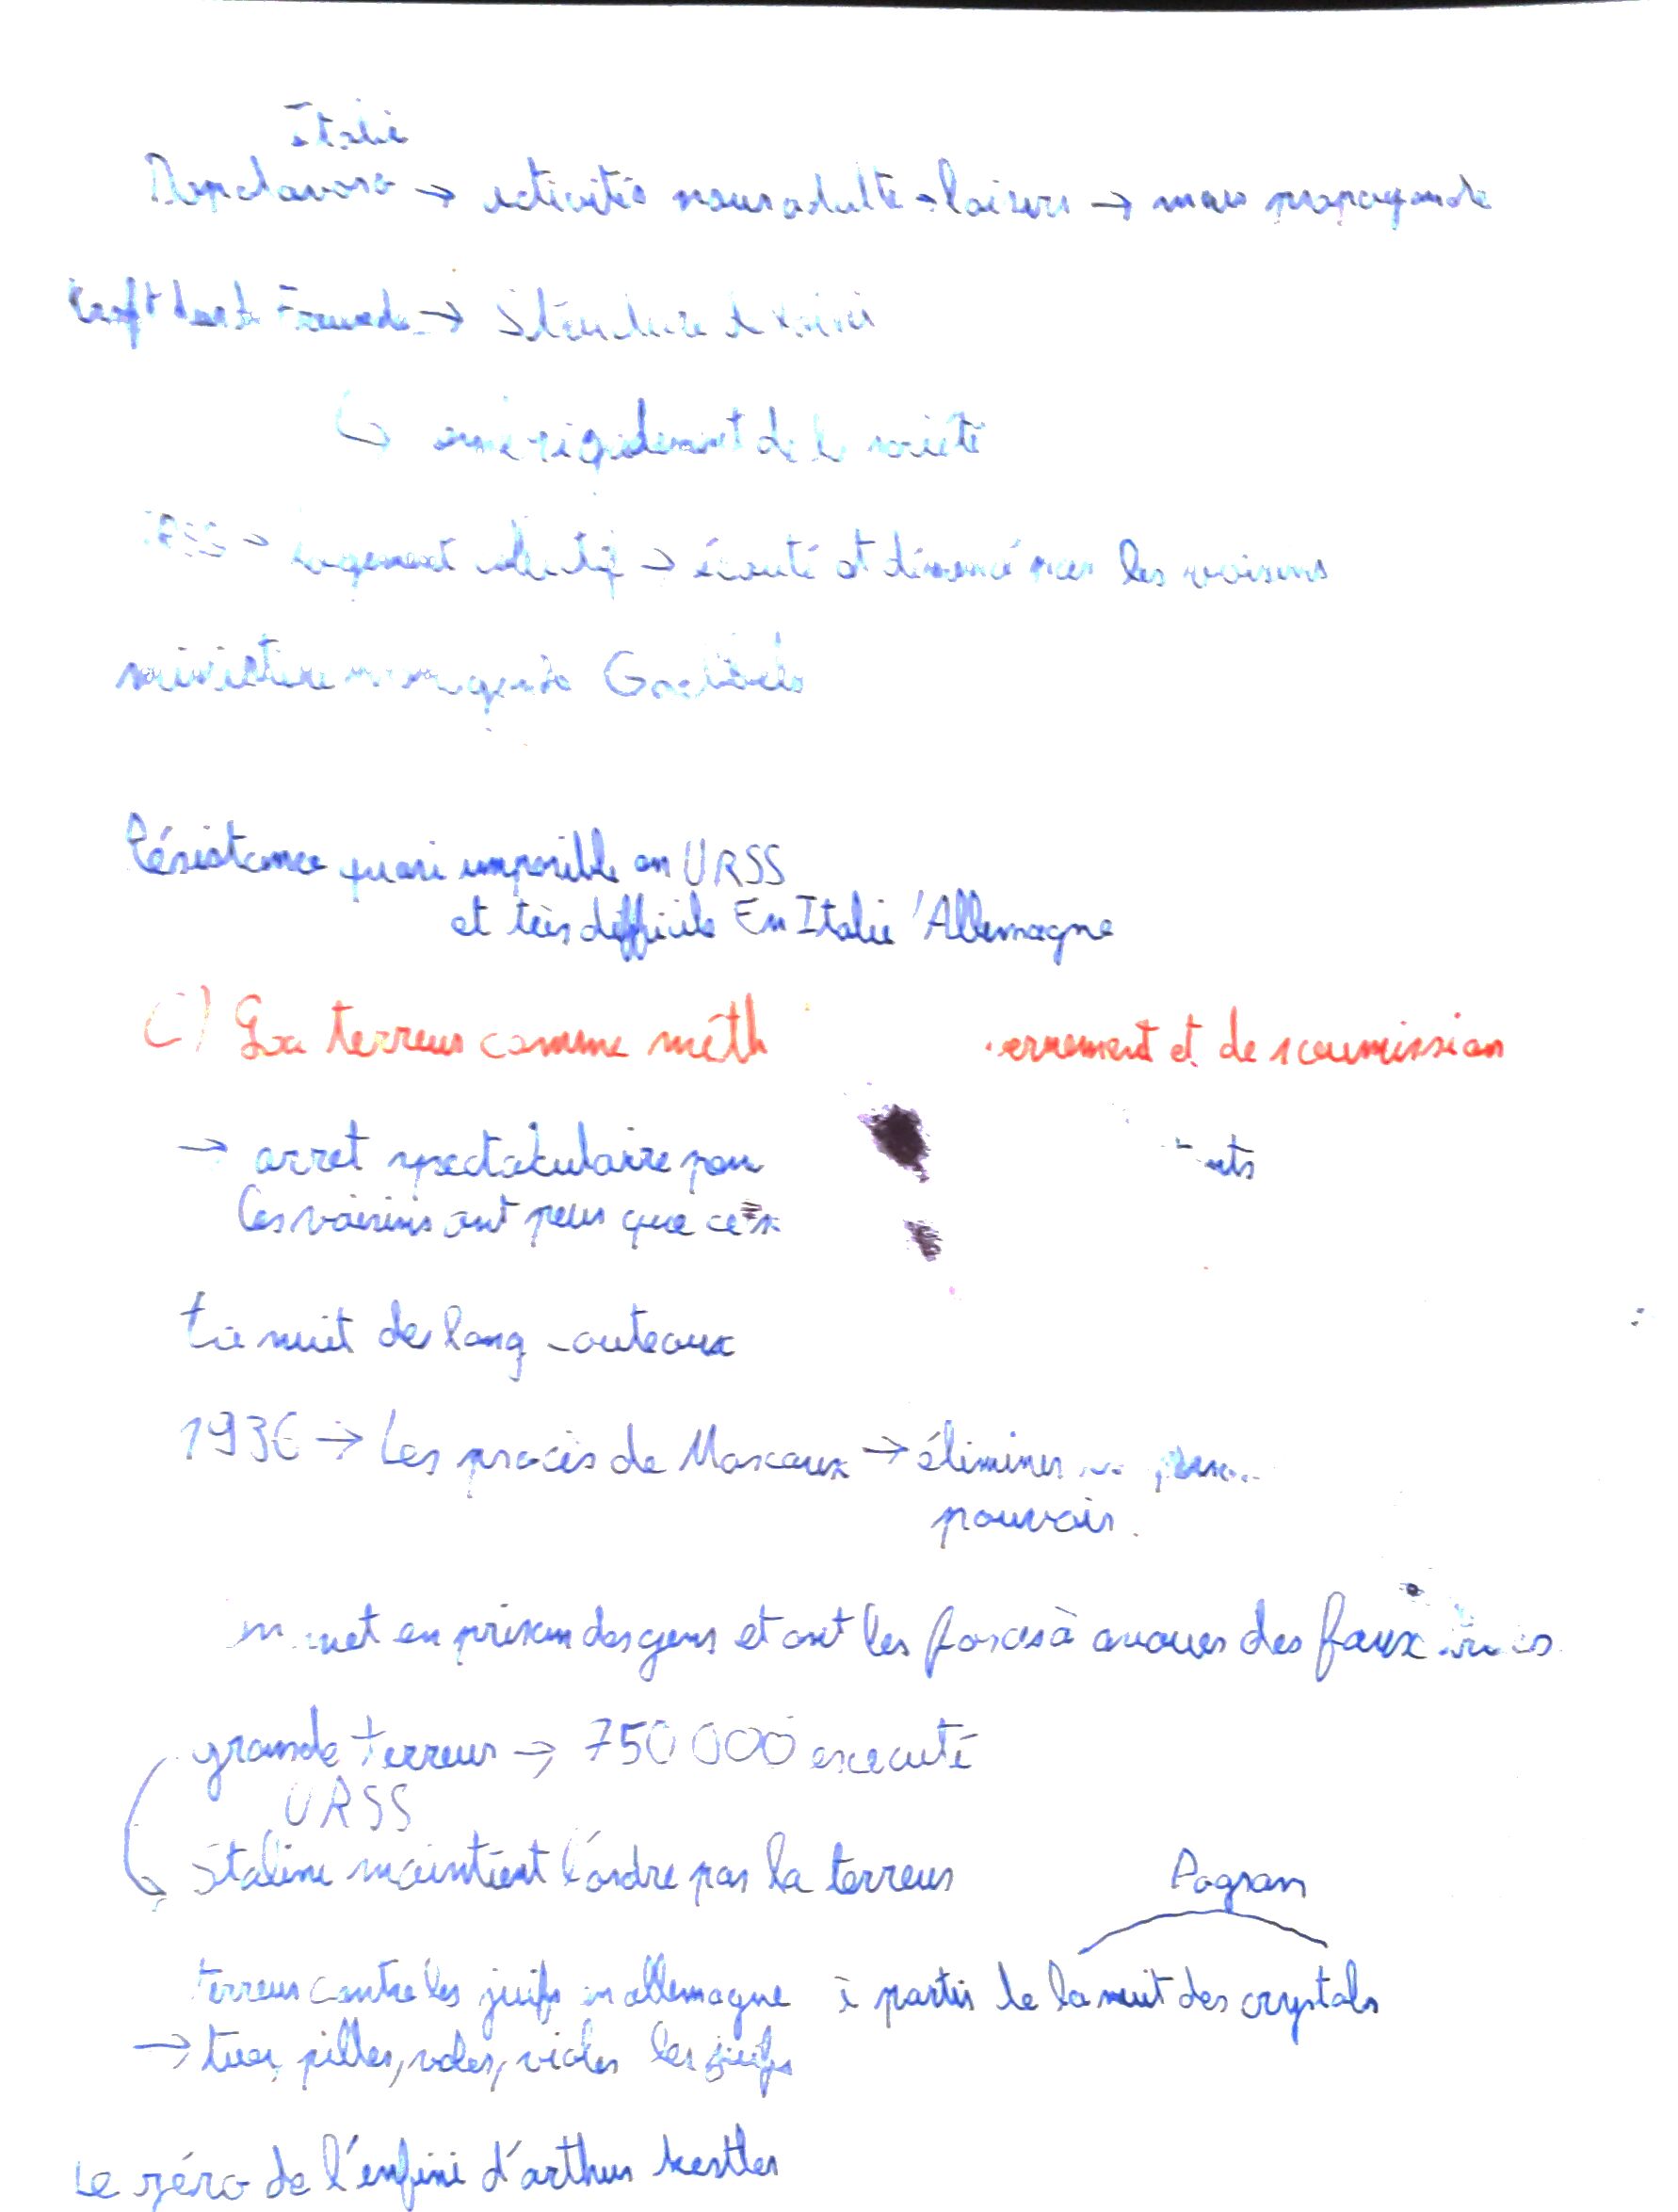 Italie
Dopolavoro → activités pour adulte - loisirs → mais propagande
Kraft durch Freude → Structure de loisir
↳ de la société
URSS → logement collectif → écouté et dénoncé par les voisins
ministère propagande Goebbels
Résistance quasi imposible en URSS
et très difficile En Italie 'Allemagne
C) La terreur comme méth ernement et de soumission
→ arret spectakulaire pour
Les voisins ont peur que ce
La nuit de long outeaux
1936 → Les procès de Moscaux → éliminer
pouvoir.
met en prison des gens et ont les forces à avouer des faux
grande terreur → 750 000 execute
URSS
Staline maintient l'ordre par la terreur
Pogram
terreur contre les juifs en allemagne à partir de la nuit des crystals
→ tuer, piller, voler, violer les juifs
Le zéro de l'enfini d'arthur kestler